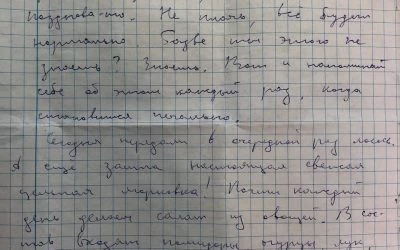 Не плачь, всё будет
нормально. Разве ты этого не
знаешь? Знаешь. Вот и напоминай
себе об этом каждый раз, когда
становится печально.
Сегодня передали в очередной раз лосось.
А еще зашла настоящая свежая
морковка! Почти каждый
день делаем салат из овощей. В сос-
тав входят помидоры, огурцы, лук,